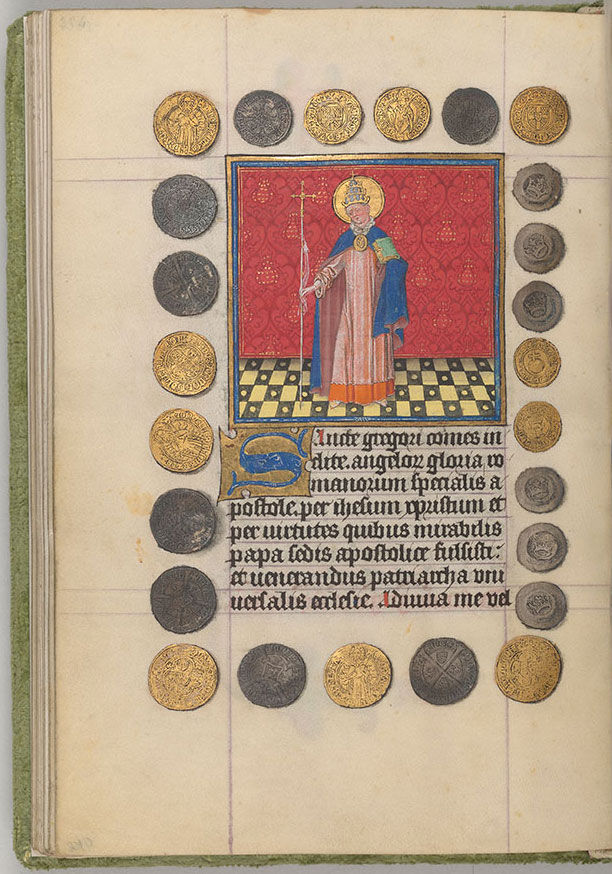 Sancte gregori comes in
clite. angelor gloria ro
manorum specialis a
postole. per ihesum xpristum et
per uirtutes quibus mirabilis
papa sedis apostolice fulsisti:
et uenerandus patriarcha vni
uersalis ecclesie. Adiuua me vel